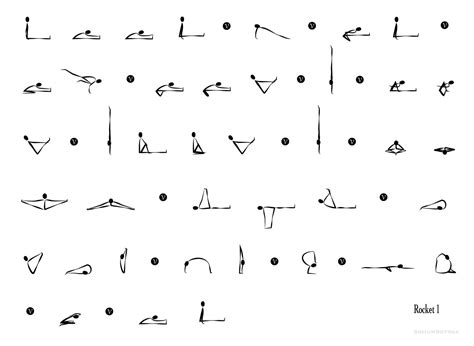 V V V
V V V
V V V
V V
V V V
V V
Rocket 1